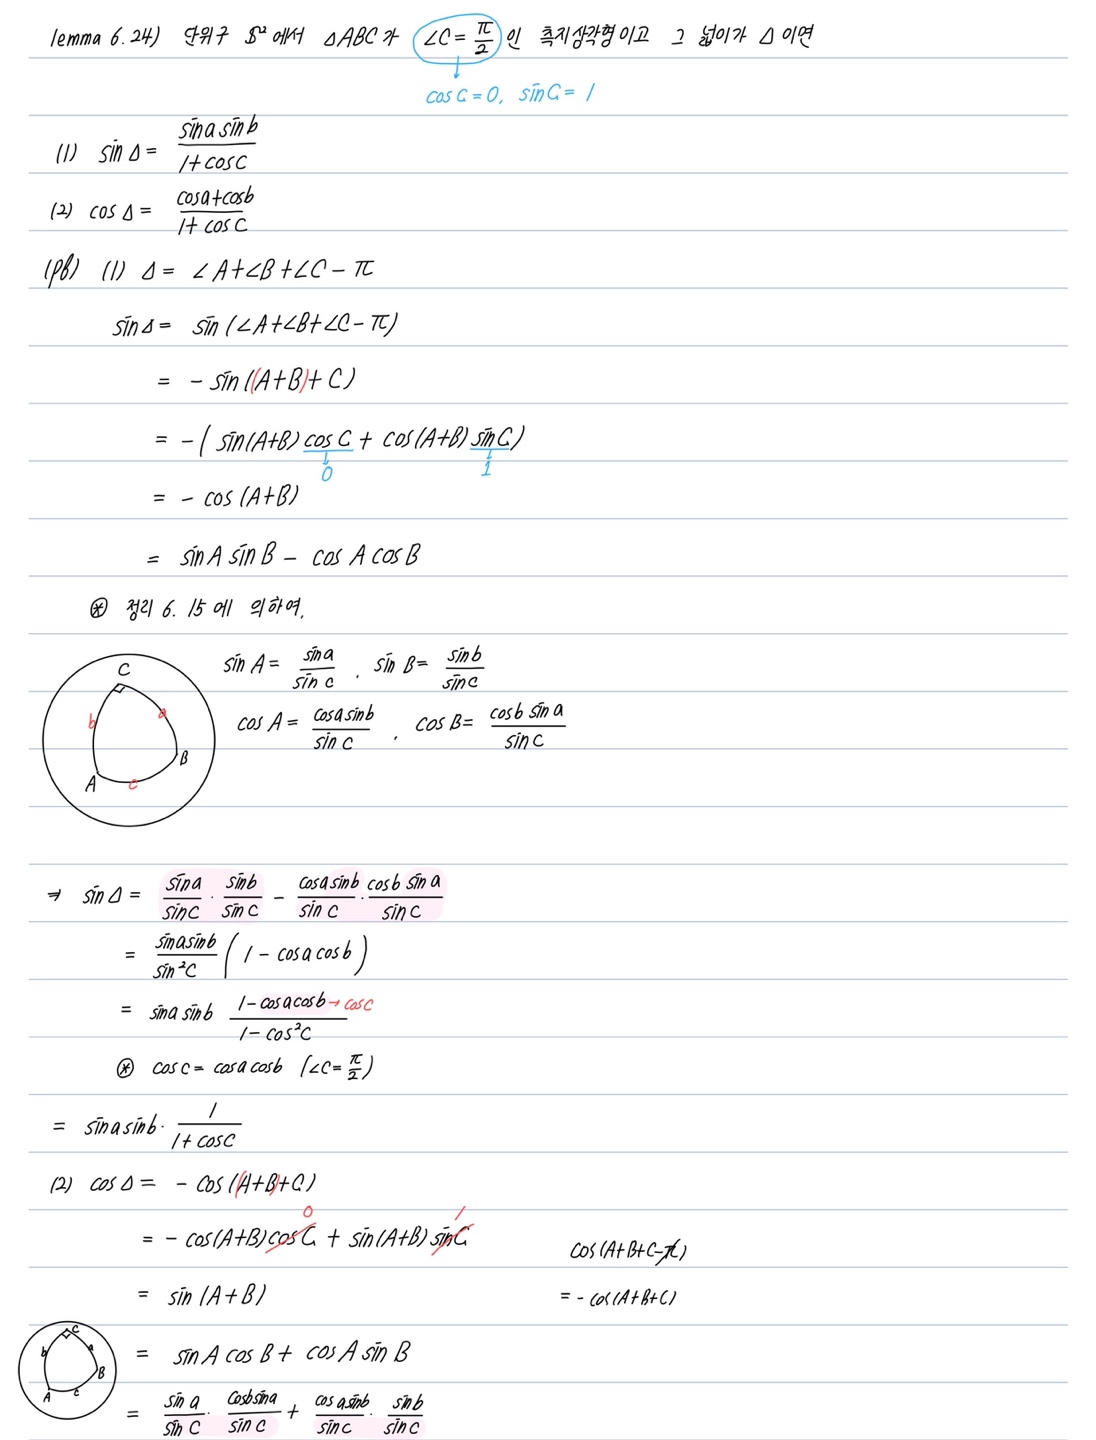 lemma 6.24) 단위구 S² 에서 △ABC가 ∠C = π/2 인 측지삼각형이고 그 넓이가 △ 이면
cos C = 0, sin C = 1
(1) sin △ = sin a sin b / 1 + cos C
(2) cos △ = cos a + cos b / 1 + cos C
(pf) (1) △ = ∠A + ∠B + ∠C - π
sin △ = sin (∠A + ∠B + ∠C - π)
= - sin ((A+B) + C)
= - ( sin(A+B) cos C + cos(A+B) sin C )
0 1
= - cos (A+B)
= sin A sin B - cos A cos B
⊛ 정리 6. 15 에 의하여,
sin A = sin a / sin c , sin B = sin b / sin c
cos A = cos a sin b / sin c , cos B = cos b sin a / sin c
C
b a
A c B
⇒ sin △ = sin a / sin c · sin b / sin c - cos a sin b / sin c · cos b sin a / sin c
= sin a sin b / sin² C ( 1 - cos a cos b )
= sin a sin b 1 - cos a cos b → cos c / 1 - cos² C
⊛ cos c = cos a cos b (∠C = π/2)
= sin a sin b · 1 / 1 + cos C
(2) cos △ = - cos ((A+B)+C)
0 1
= - cos(A+B) cos C + sin(A+B) sin C
cos (A+B+C-π)
= sin (A+B)
= - cos (A+B+C)
C
b a
A c B
= sin A cos B + cos A sin B
= sin a / sin c · cos b sin a / sin c + cos a sin b / sin c · sin b / sin c